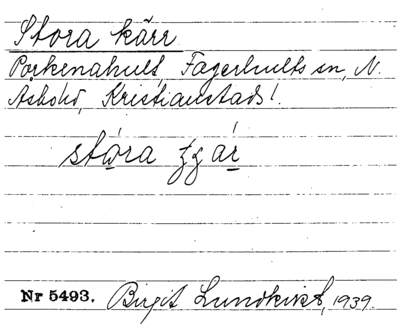 Stora kärr
Porkenahult, Fagerhults sn, N.
Asbo hd, Kristianstads l.
stóra ʒʒár
Nr 5493. Birgit Lundkvist, 1939.